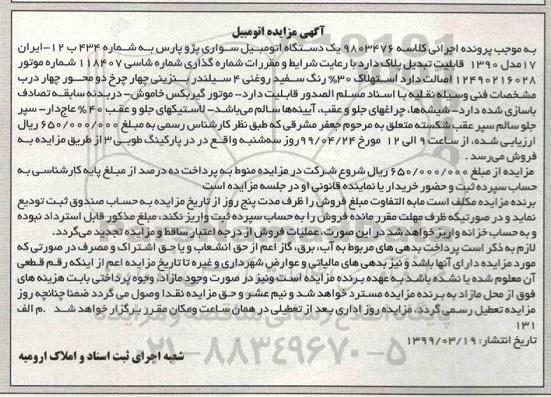 آگهی مزایده اتومبیل
به موجب پرونده اجرائی کلاسه ۹۸۰۳۴۷۶ یک دستگاه اتومبیل سواری پژو پارس به شماره ۴۳۴ ب ۱۲-ایران
۱۷مدل ۱۳۹۰ قابلیت تبدیل پلاک دارد با رعایت شرایط و مقررات شماره گذاری شماره شاسی ۱۱۸۴۰۷ شماره موتور
۱۲۴۹۰۲۱۶۰۲۸ اصالت دارد استهلاک ۳۰% رنگ سفید روغنی ۴ سیلندر بنزینی چهار چرخ دو محور چهار درب
مشخصات فنی وسیله نقلیه با اسناد مسلم الصدور قابلیت دارد- موتور گیربکس خاموش- دربدنه سابقه تصادف
باسازی شده دارد- شیشه‌ها، چراغهای جلو و عقب، آیینه‌ها سالم می‌باشد- لاستیکهای جلو و عقب ۴۰% عاجدار- سپر
جلو سالم سپر عقب شکسته متعلق به مرحوم جعفر مشرقی که طبق نظر کارشناس رسمی به مبلغ ۶۵۰/۰۰۰/۰۰۰ ریال
ارزیابی شده، از ساعت ۹ الی ۱۲ مورخ ۹۹/۰۴/۲۴روز سه‌شنبه واقع در در پارکینگ طوبی ۳از طریق مزایده به
فروش می‌رسد.
مزایده از مبلغ ۶۵۰/۰۰۰/۰۰۰ ریال شروع شرکت در مزایده منوط به پرداخت ده درصد از مبلغ پایه کارشناسی به
حساب سپرده ثبت و حضور خریدار یا نماینده قانونی او در جلسه مزایده است
برنده مزایده مکلف است مابه التفاوت مبلغ فروش را ظرف مدت پنج روز از تاریخ مزایده به حساب صندوق ثبت تودیع
نماید و در صورتیکه ظرف مهلت مقرر مانده فروش را به حساب سپرده ثبت واریز نکند، مبلغ مذکور قابل استرداد نبوده
و به حساب خزانه واریز خواهد شد در این صورت، عملیات فروش از درجه اعتبار ساقط و مزایده تجدید می‌گردد.
لازم به ذکر است پرداخت بدهی های مربوط به آب، برق، گاز اعم از حق انشعاب و یا حق اشتراک و مصرف در صورتی که
مورد مزایده دارای آنها باشد و نیز بدهی های مالیاتی و عوارض شهرداری و غیره تا تاریخ مزایده اعم از اینکه رقم قطعی
آن معلوم شده یا نشده باشد به عهده برنده مزایده است ونیز در صورت وجود مازاد، وجوه پرداختی بابت هزینه های
فوق از محل مازاد به برنده مزایده مسترد خواهد شد و نیم عشر و حق مزایده نقدا وصول می گردد ضمنا چنانچه روز
مزایده تعطیل رسمی گردد، مزایده روز اداری بعد از تعطیلی در همان ساعت ومکان مقرر برگزار خواهد شد .م الف
۱۳۱
تاریخ انتشار: ۱۳۹۹/۰۳/۱۹
شعبه اجرای ثبت اسناد و املاک ارومیه
۰۲۱-۸۸۳۴۹۶۷۰-۵